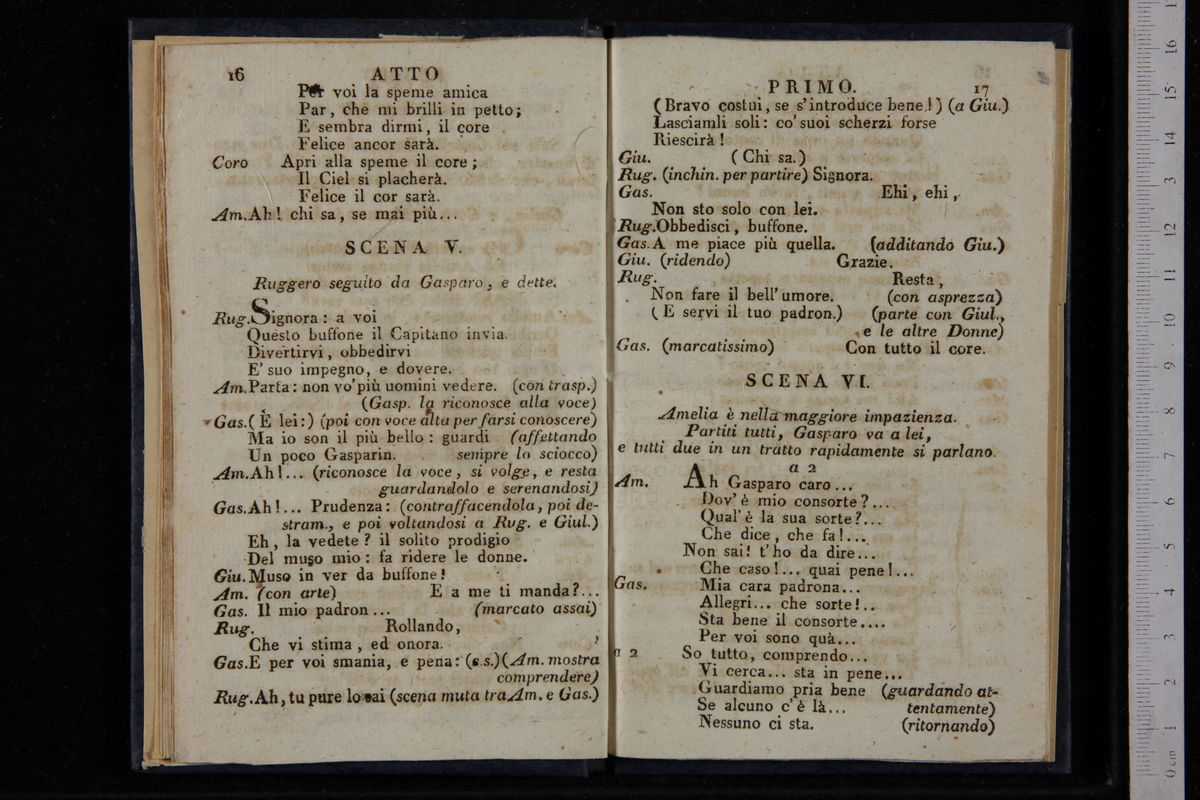 16 ATTO
Per voi la speme amica
Par, che mi brilli in petto;
E sembra dirmi, il core
Felice ancor sarà.
Coro Apri alla speme il core;
Il Ciel si placherà.
Felice il cor sarà.
Am. Ah! chi sa, se mai più...
SCENA V.
Ruggero seguito da Gasparo, e dette.
Rug. Signora: a voi
Questo buffone il Capitano invia.
Divertirvi, obbedirvi
E' suo impegno, e dovere.
Am. Parta: non vo' più uomini vedere. (con trasp.)
(Gasp. la riconosce alla voce)
Gas. (È lei:) (poi con voce alta per farsi conoscere)
Ma io son il più bello: guardi (affettando
Un poco Gasparin. sempre lo sciocco)
Am. Ah!... (riconosce la voce, si volge, e resta
guardandolo e serenandosi)
Gas. Ah!... Prudenza: (contraffacendola, poi de-
stram., e poi voltandosi a Rug. e Giul.)
Eh, la vedete? il solito prodigio
Del muso mio: fa ridere le donne.
Giu. Muso in ver da buffone!
Am. (con arte) E a me ti manda?...
Gas. Il mio padron... (marcato assai)
Rug. Rollando,
Che vi stima, ed onora.
Gas. E per voi smania, e pena: (s.s.) (Am. mostra
comprendere)
Rug. Ah, tu pure lo sai (scena muta tra Am. e Gas.)
PRIMO. 17
(Bravo costui, se s'introduce bene!) (a Giu.)
Lasciamli soli: co' suoi scherzi forse
Riescirà!
Giu. (Chi sa.)
Rug. (inchin. per partire) Signora.
Gas. Ehi, ehi,
Non sto solo con lei.
Rug. Obbedisci, buffone.
Gas. A me piace più quella. (additando Giu.)
Giu. (ridendo) Grazie.
Rug. Resta,
Non fare il bell' umore. (con asprezza)
(E servi il tuo padron.) (parte con Giul.,
e le altre Donne)
Gas. (marcatissimo) Con tutto il core.
SCENA VI.
Amelia è nella maggiore impazienza.
Partiti tutti, Gasparo va a lei,
e tutti due in un tratto rapidamente si parlano.
a 2
Am. Ah Gasparo caro...
Dov' è mio consorte?...
Qual' è la sua sorte?...
Che dice, che fa!...
Non sai! t' ho da dire...
Che caso!... quai pene!...
Gas. Mia cara padrona...
Allegri... che sorte!..
Sta bene il consorte....
Per voi sono quà...
a 2 So tutto, comprendo...
Vi cerca... sta in pene...
Guardiamo pria bene (guardando at-
Se alcuno c' è là... tentamente)
Nessuno ci sta. (ritornando)
0 cm 1 2 3 4 5 6 7 8 9 10 11 12 13 14 15 16